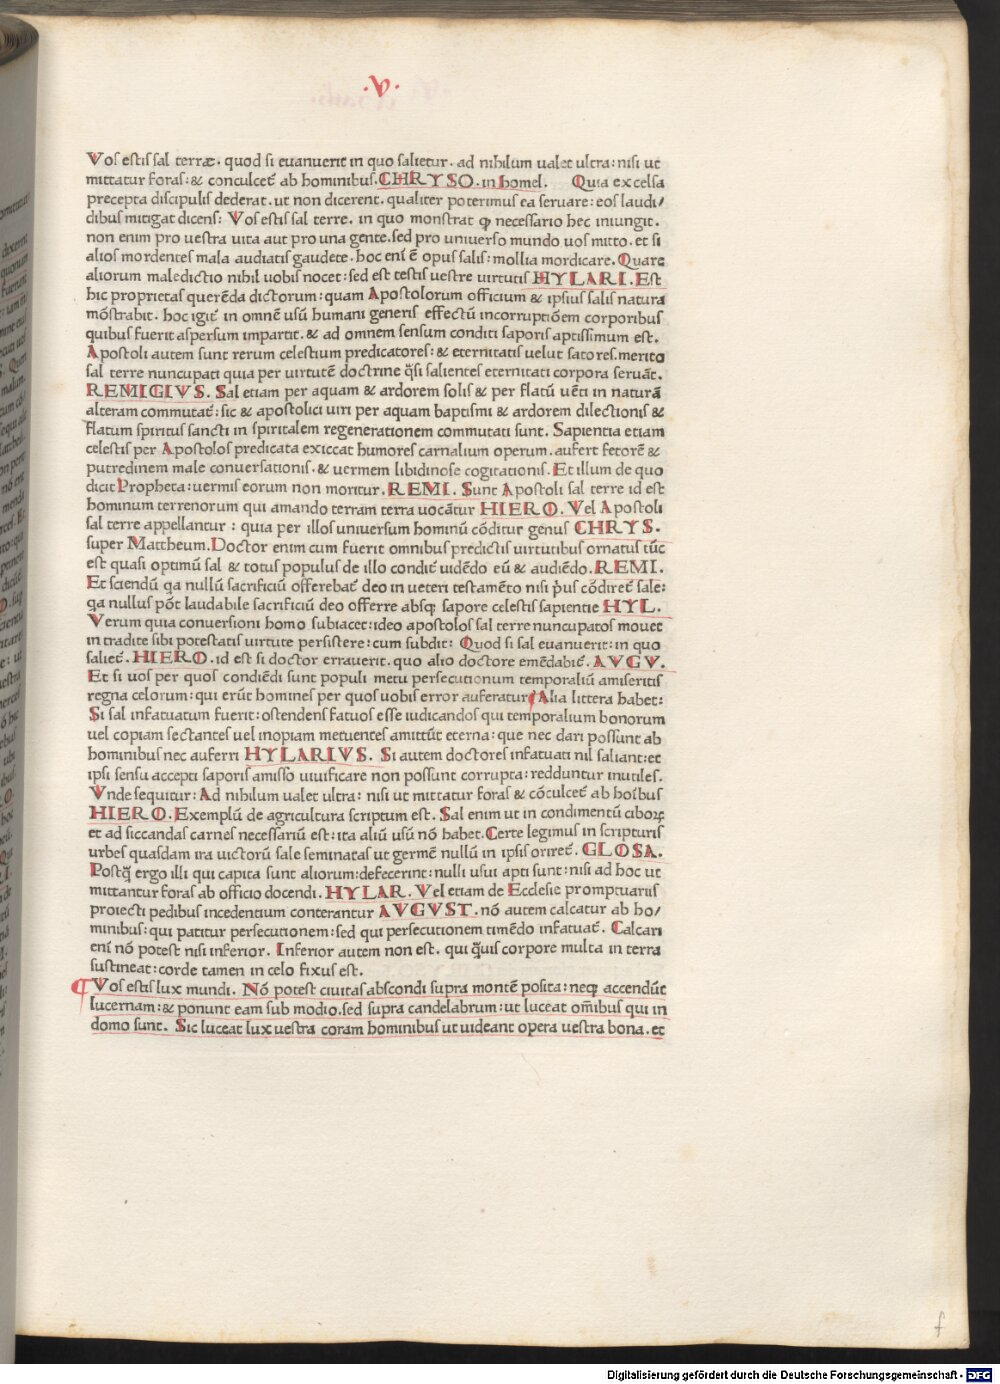 ·V·
Vos estis sal terræ. quod si euanuerit in quo salietur. ad nihilum ualet ultra: nisi ut
mittatur foras: & conculcet̃ ab hominibus. CHRYSO. in homel. Quia excelsa
precepta discipulis dederat. ut non dicerent. qualiter poterimus ea seruare: eos laudi/
dibus mitigat dicens: Vos estis sal terre. in quo monstrat ꝙ necessario hec iniungit.
non enim pro uestra uita aut pro una gente. sed pro uniuerso mundo uos mitto. et si
alios mordentes mala audiatis gaudete. hoc eni᷑ ē opus salis: mollia mordicare. Quare
aliorum maledictio nihil uobis nocet: sed est testis uestre uirtutis HYLARI. Est
hic proprietas querēda dictorum: quam Apostolorum officium & ipsius salis natura
mōstrabit. hoc igit̃ in omnē usū humani generis effectū incorruptiōem corporibus
quibus fuerit aspersum impartit. & ad omnem sensum conditi saporis aptissimum est.
Apostoli autem sunt rerum celestium predicatores: & eternitatis uelut satores. merito
sal terre nuncupati quia per uirtutē doctrine q̃si salientes eternitati corpora seruāt.
REMIGIVS. Sal etiam per aquam & ardorem solis & per flatū uēti in naturā
alteram commutat̃: sic & apostolici uiri per aquam baptismi & ardorem dilectionis &
flatum spiritus sancti in spiritalem regenerationem commutati sunt. Sapientia etiam
celestis per Apostolos predicata exiccat humores carnalium operum. aufert fetorē &
putredinem male conuersationis. & uermem libidinose cogitationis. Et illum de quo
dicit Propheta: uermis eorum non moritur. REMI. Sunt Apostoli sal terre id est
hominum terrenorum qui amando terram terra uocātur HIERO. Vel Apostoli
sal terre appellantur: quia per illos uniuersum hominū cōditur genus CHRYS.
super Mattheum. Doctor enim cum fuerit omnibus predictis uirtutibus ornatus tūc
est quasi optimū sal & totus populus de illo condit̃ uidēdo eū & audiēdo. REMI.
Et sciendū qa nullū sacrificiū offerebat̃ deo in ueteri testamēto nisi p̃us cōdiret̃ sale:
qa nullus pōt laudabile sacrificiū deo offerre absq; sapore celestis sapientie HYL.
Verum quia conuersioni homo subiacet: ideo apostolos sal terre nuncupatos mouet
in tradite sibi potestatis uirtute persistere: cum subdit: Quod si sal euanuerit: in quo
saliet̃. HIERO. id est si doctor errauerit. quo alio doctore emēdabit̃. AVGV.
Et si uos per quos condiēdi sunt populi metu persecutionum temporaliū amiseritis
regna celorum: qui erūt homines per quos uobis error auferatur ¶Alia littera habet:
Si sal infatuatum fuerit: ostendens fatuos esse iudicandos qui temporalium bonorum
uel copiam sectantes uel inopiam metuentes amittūt eterna: que nec dari possunt ab
hominibus nec auferri HYLARIVS. Si autem doctores infatuati nil saliant: et
ipsi sensu accepti saporis amisso uiuificare non possunt corrupta: redduntur inutiles.
Vnde sequitur: Ad nihilum ualet ultra: nisi ut mittatur foras & cōculcet̃ ab hoībus
HIERO. Exemplū de agricultura scriptum est. Sal enim ut in condimentū ciboꝝ
et ad siccandas carnes necessariū est: ita aliū usū nō habet. Certe legimus in scripturis
urbes quasdam ira uictorū sale seminatas ut germē nullū in ipsis oriret̃. GLOSA.
Postq̃ ergo illi qui capita sunt aliorum: defecerint: nulli usui apti sunt: nisi ad hoc ut
mittantur foras ab officio docendi. HYLAR. Vel etiam de Ecclesie promptuariis
proiecti pedibus incedentium conterantur AVGVST. nō autem calcatur ab ho/
minibus: qui patitur persecutionem: sed qui persecutionem timēdo infatuat̃. Calcari
eni᷑ nō potest nisi inferior. Inferior autem non est. qui q̃uis corpore multa in terra
sustineat: corde tamen in celo fixus est.
¶ Vos estis lux mundi. Nō potest ciuitas abscondi supra montē posita: neq; accendūt
lucernam: & ponunt eam sub modio. sed supra candelabrum: ut luceat om̃ibus qui in
domo sunt. Sic luceat lux uestra coram hominibus ut uideant opera uestra bona. et
f
Digitalisierung gefördert durch die Deutsche Forschungsgemeinschaft - DFG